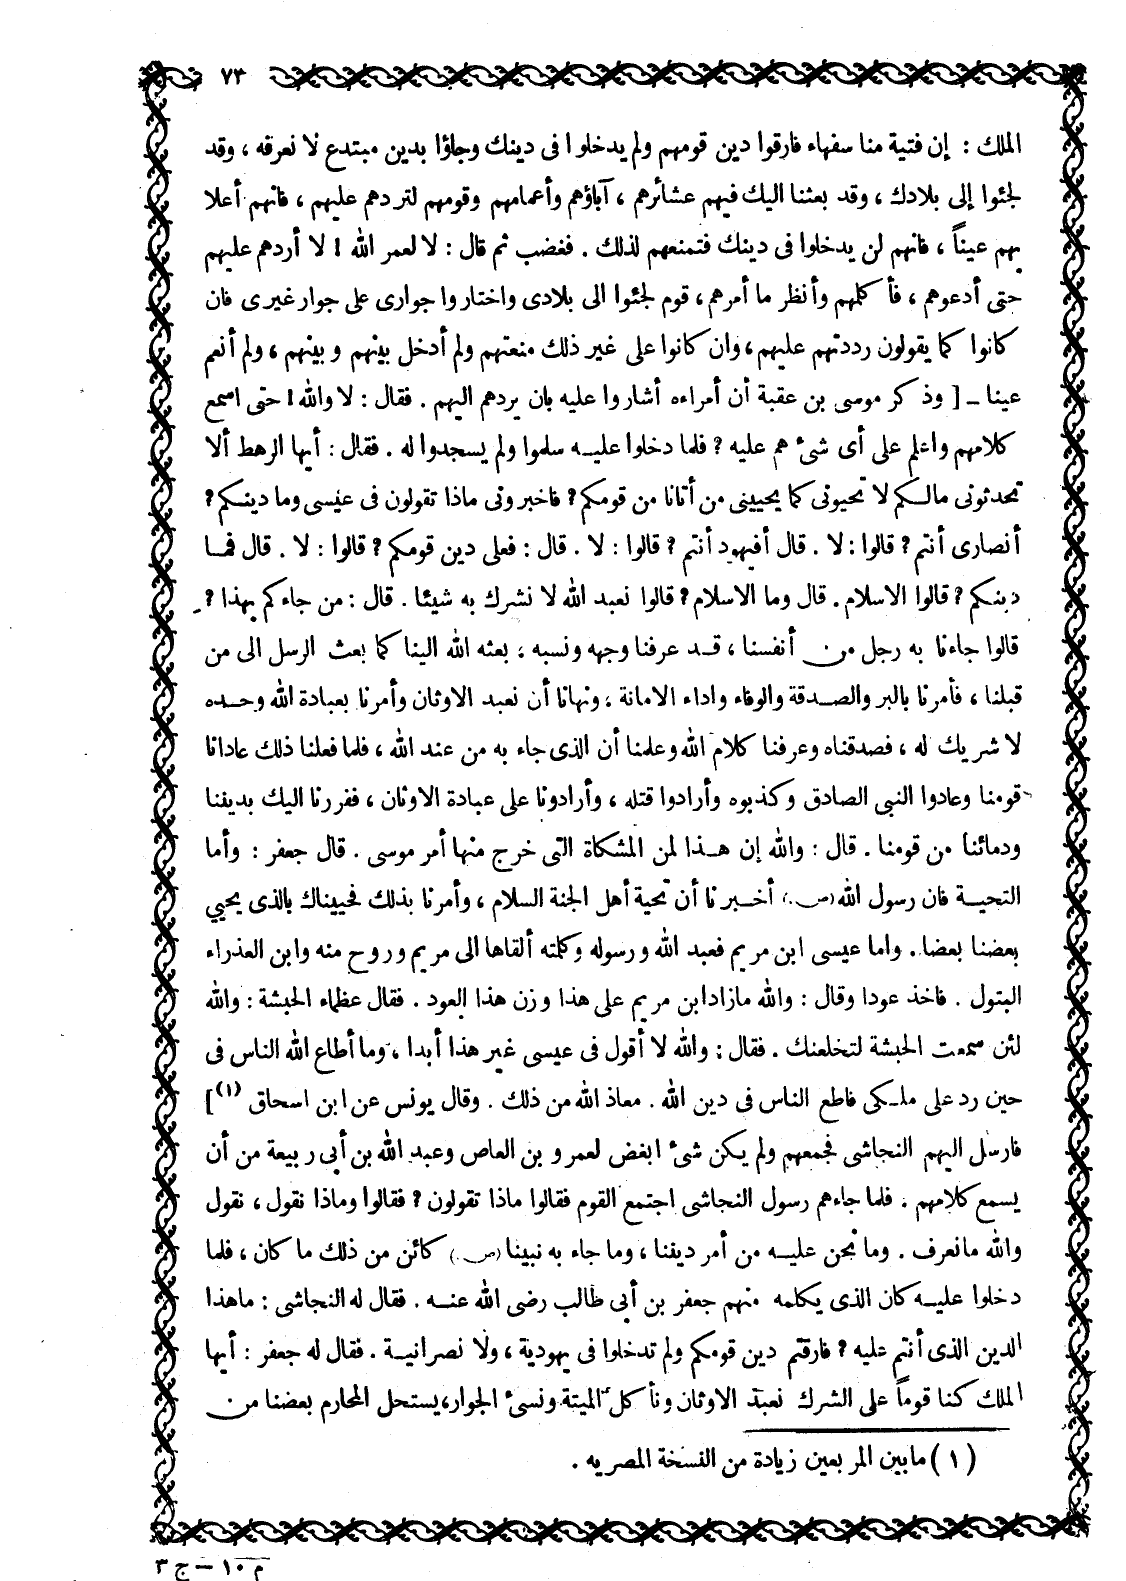 ٧٣
الملك : إن فتية منا سفهاء فارقوا دين قومهم ولم يدخلوا فى دينك وجاؤا بدين مبتدع لا نعرفه ، وقد
لجئوا إلى بلادك ، وقد بعثنا اليك فيهم عشائرهم ، آباؤهم وأعمامهم وقومهم لتردهم عليهم ، فانهم أعلا
بهم عيناً ، فانهم لن يدخلوا فى دينك فتمنعهم لذلك . فغضب ثم قال : لا لعمر الله ! لا أردهم عليهم
حتى أدعوهم ، فأكلمهم وأنظر ما أمرهم ، قوم لجئوا الى بلادى واختاروا جوارى على جوار غيرى فان
كانوا كما يقولون رددتهم عليهم ، وان كانوا على غير ذلك منعتهم ولم أدخل بينهم وبينهم ، ولم أنعم
عينا ـ [ وذكر موسى بن عقبة أن أمراءه أشاروا عليه بان يردهم اليهم . فقال : لا والله ! حتى اسمع
كلامهم واعلم على أى شىء هم عليه ؟ فلما دخلوا عليه سلموا ولم يسجدوا له . فقال : أيها الرهط ألا
تحدثونى مالكم لا تحيونى كما يحيينى من أتانا من قومكم ؟ فاخبرونى ماذا تقولون فى عيسى وما دينكم ؟
أنصارى أنتم ؟ قالوا : لا . قال أفيهود أنتم ؟ قالوا : لا . قال : فعلى دين قومكم ؟ قالوا : لا . قال فما
دينكم ؟ قالوا الاسلام . قال وما الاسلام ؟ قالوا نعبد الله لا نشرك به شيئا . قال : من جاءكم بهذا ؟
قالوا جاءنا به رجل من أنفسنا ، قد عرفنا وجهه ونسبه ، بعثه الله الينا كما بعث الرسل الى من
قبلنا ، فأمرنا بالبر والصدقة والوفاء واداء الامانة ، ونهانا أن نعبد الاوثان وأمرنا بعبادة الله وحده
لا شريك له ، فصدقناه وعرفنا كلام الله وعلمنا أن الذى جاء به من عند الله ، فلما فعلنا ذلك عادانا
قومنا وعادوا النبى الصادق وكذبوه وأرادوا قتله ، وأرادونا على عبادة الاوثان ، ففررنا اليك بديننا
ودمائنا من قومنا . قال : والله إن هذا لمن المشكاة التى خرج منها أمر موسى . قال جعفر : وأما
التحية فان رسول الله (ص) أخبرنا أن تحية أهل الجنة السلام ، وأمرنا بذلك فحييناك بالذى يحيي
بعضنا بعضا . واما عيسى ابن مريم فعبد الله ورسوله وكلمته ألقاها الى مريم وروح منه وابن العذراء
البتول . فاخذ عودا وقال : والله مازاد ابن مريم على هذا وزن هذا العود . فقال عظماء الحبشة : والله
لئن سمعت الحبشة لتخلعنك . فقال : والله لا أقول فى عيسى غير هذا أبدا ، وما أطاع الله الناس فى
حين رد على ملكى فاطع الناس فى دين الله . معاذ الله من ذلك . وقال يونس عن ابن اسحاق (١) ]
فارسل اليهم النجاشى فجمعهم ولم يكن شىء ابغض لعمرو بن العاص وعبد الله بن أبى ربيعة من أن
يسمع كلامهم . فلما جاءهم رسول النجاشى اجتمع القوم فقالوا ماذا تقولون ؟ فقالوا وماذا نقول ، نقول
والله ما نعرف . وما نحن عليه من أمر ديننا ، وما جاء به نبينا (ص) كائن من ذلك ما كان ، فلما
دخلوا عليه كان الذى يكلمه منهم جعفر بن أبى طالب رضى الله عنه . فقال له النجاشى : ماهذا
الدين الذى أنتم عليه ؟ فارقتم دين قومكم ولم تدخلوا فى يهودية ، ولا نصرانية . فقال له جعفر : أيها
الملك كنا قوماً على الشرك نعبد الاوثان ونأكل الميتة ونسىء الجوار، يستحل المحارم بعضنا من
(١) مابين المربعين زيادة من النسخة المصريه .
م ١٠ ـ ج ٣